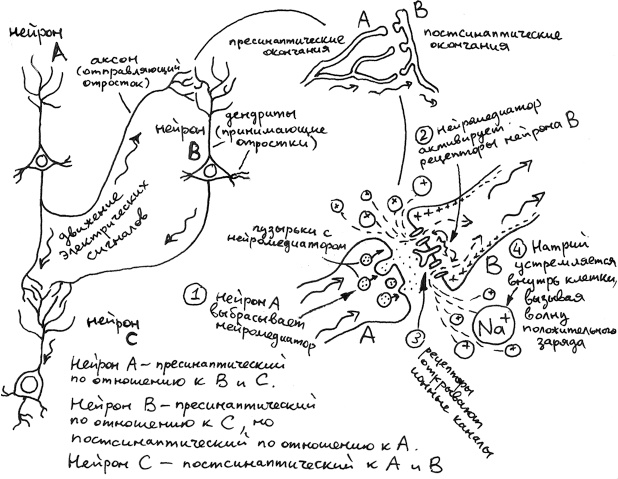 нейрон
A
аксон
(отправляющий
отросток)
нейрон
B
дендриты
(принимающие
отростки)
движение
электрических
сигналов
нейрон
C
пресинаптические
окончания
A
B
постсинаптические
окончания
② Нейромедиатор
активирует
рецепторы нейрона B
пузырьки с
нейромедиатором
① Нейрон A
выбрасывает
нейромедиатор
A
B
③ рецепторы
открывают
ионные каналы
④ Натрий
устремляется
внутрь клетки,
вызывая
волну
положительного
заряда
Na+
+
+
+
+
+
+
+
+
+
Нейрон A – пресинаптический
по отношению к B и C.
Нейрон B – пресинаптический
по отношению к C, но
постсинаптический по отношению к A.
Нейрон C – постсинаптический к A и B